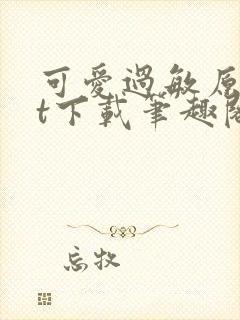 可愛過敏原
t下載筆趣閣
忘牧